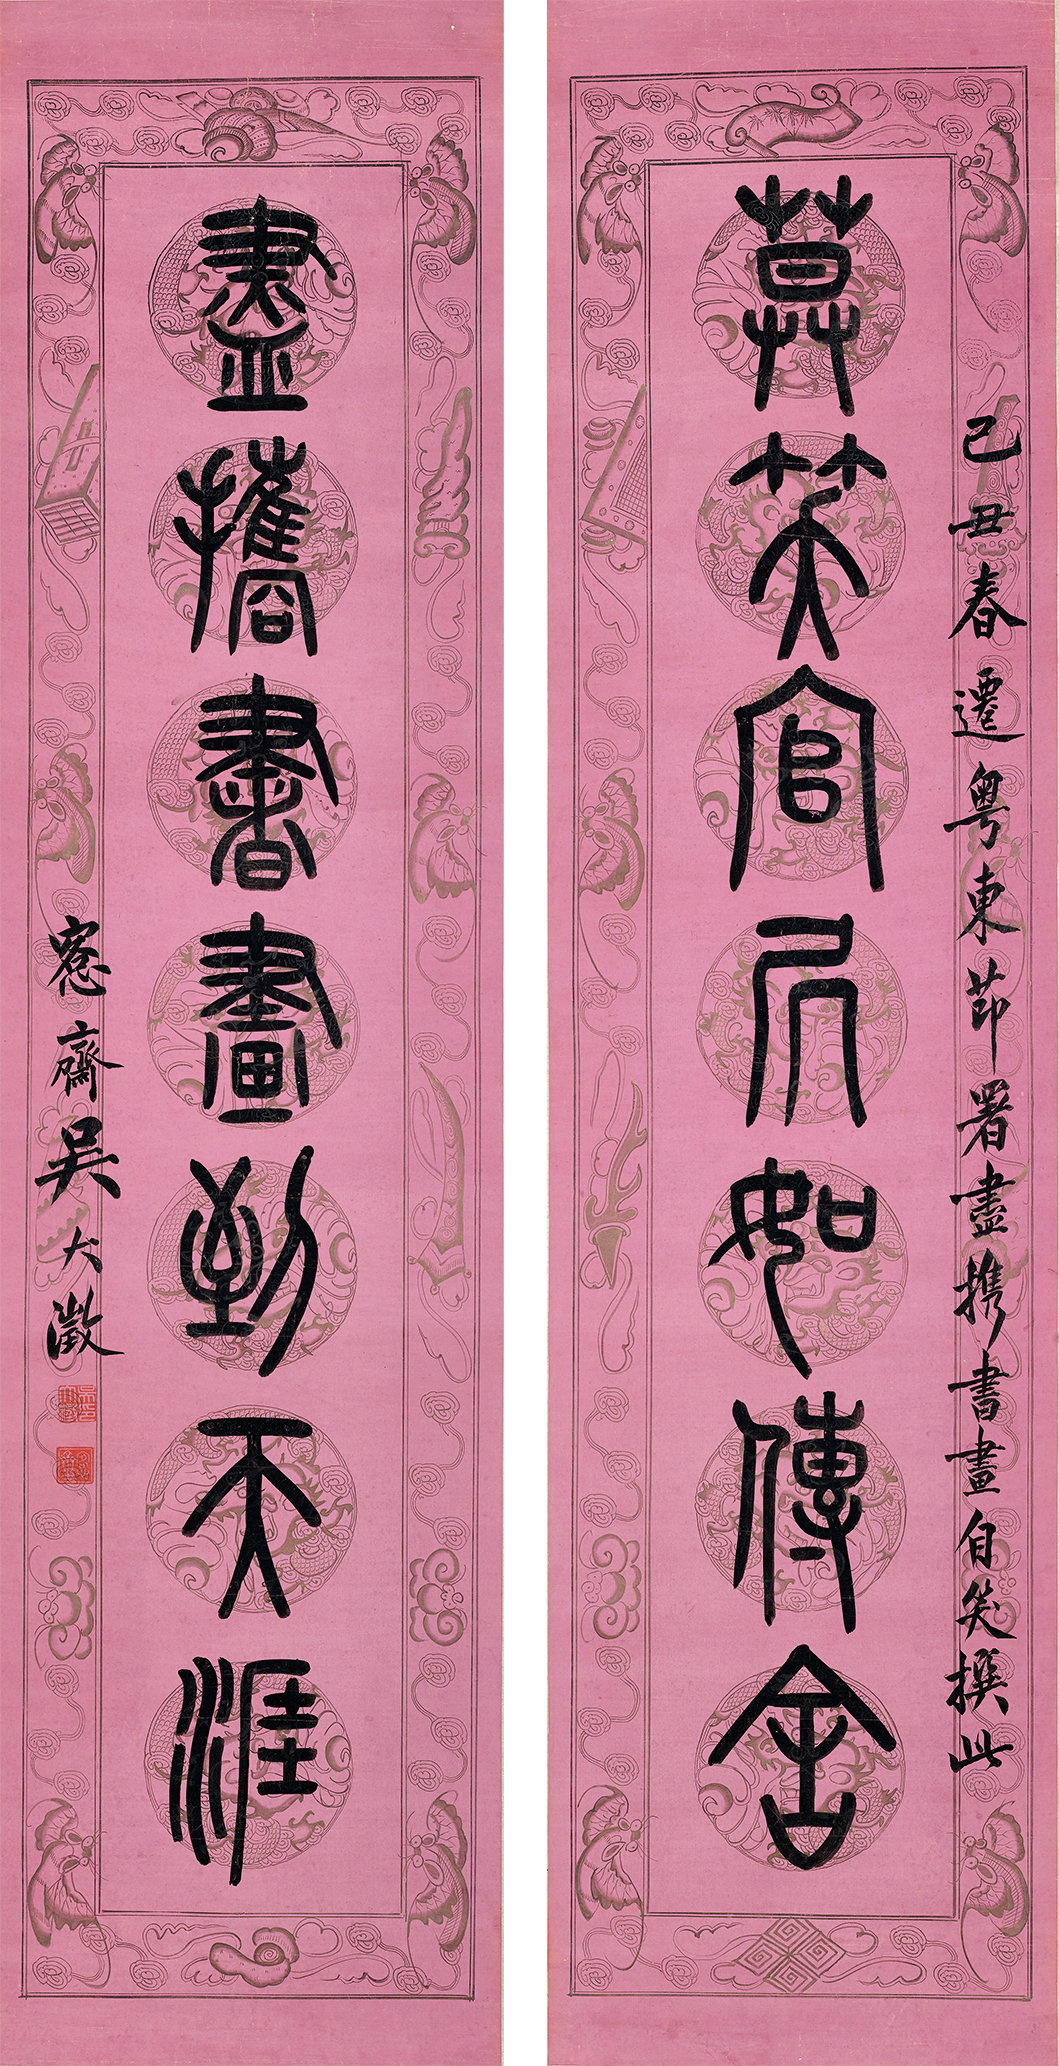 己丑春遷粵東節署盡携書畫自笑撰此
莫笑官居如傳舍
盡攜書畫到天涯
愙齋吳大澂